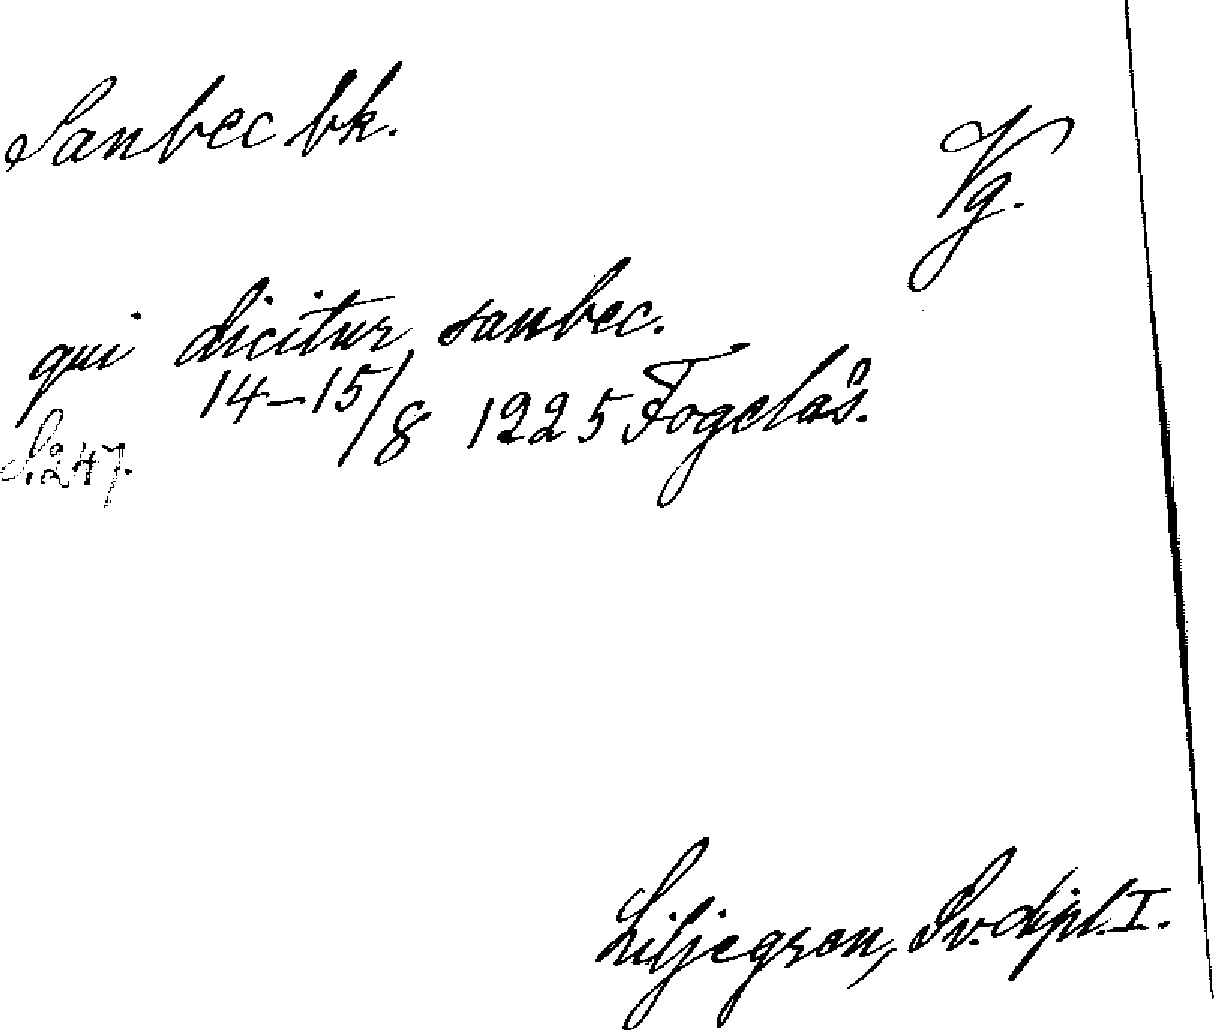 Sanbec bk.
Vg.
qui dicitur sanbec.
14-15/8 1225 Fogelås.
S. 247.
Liljegren, Sv. dipl. I.